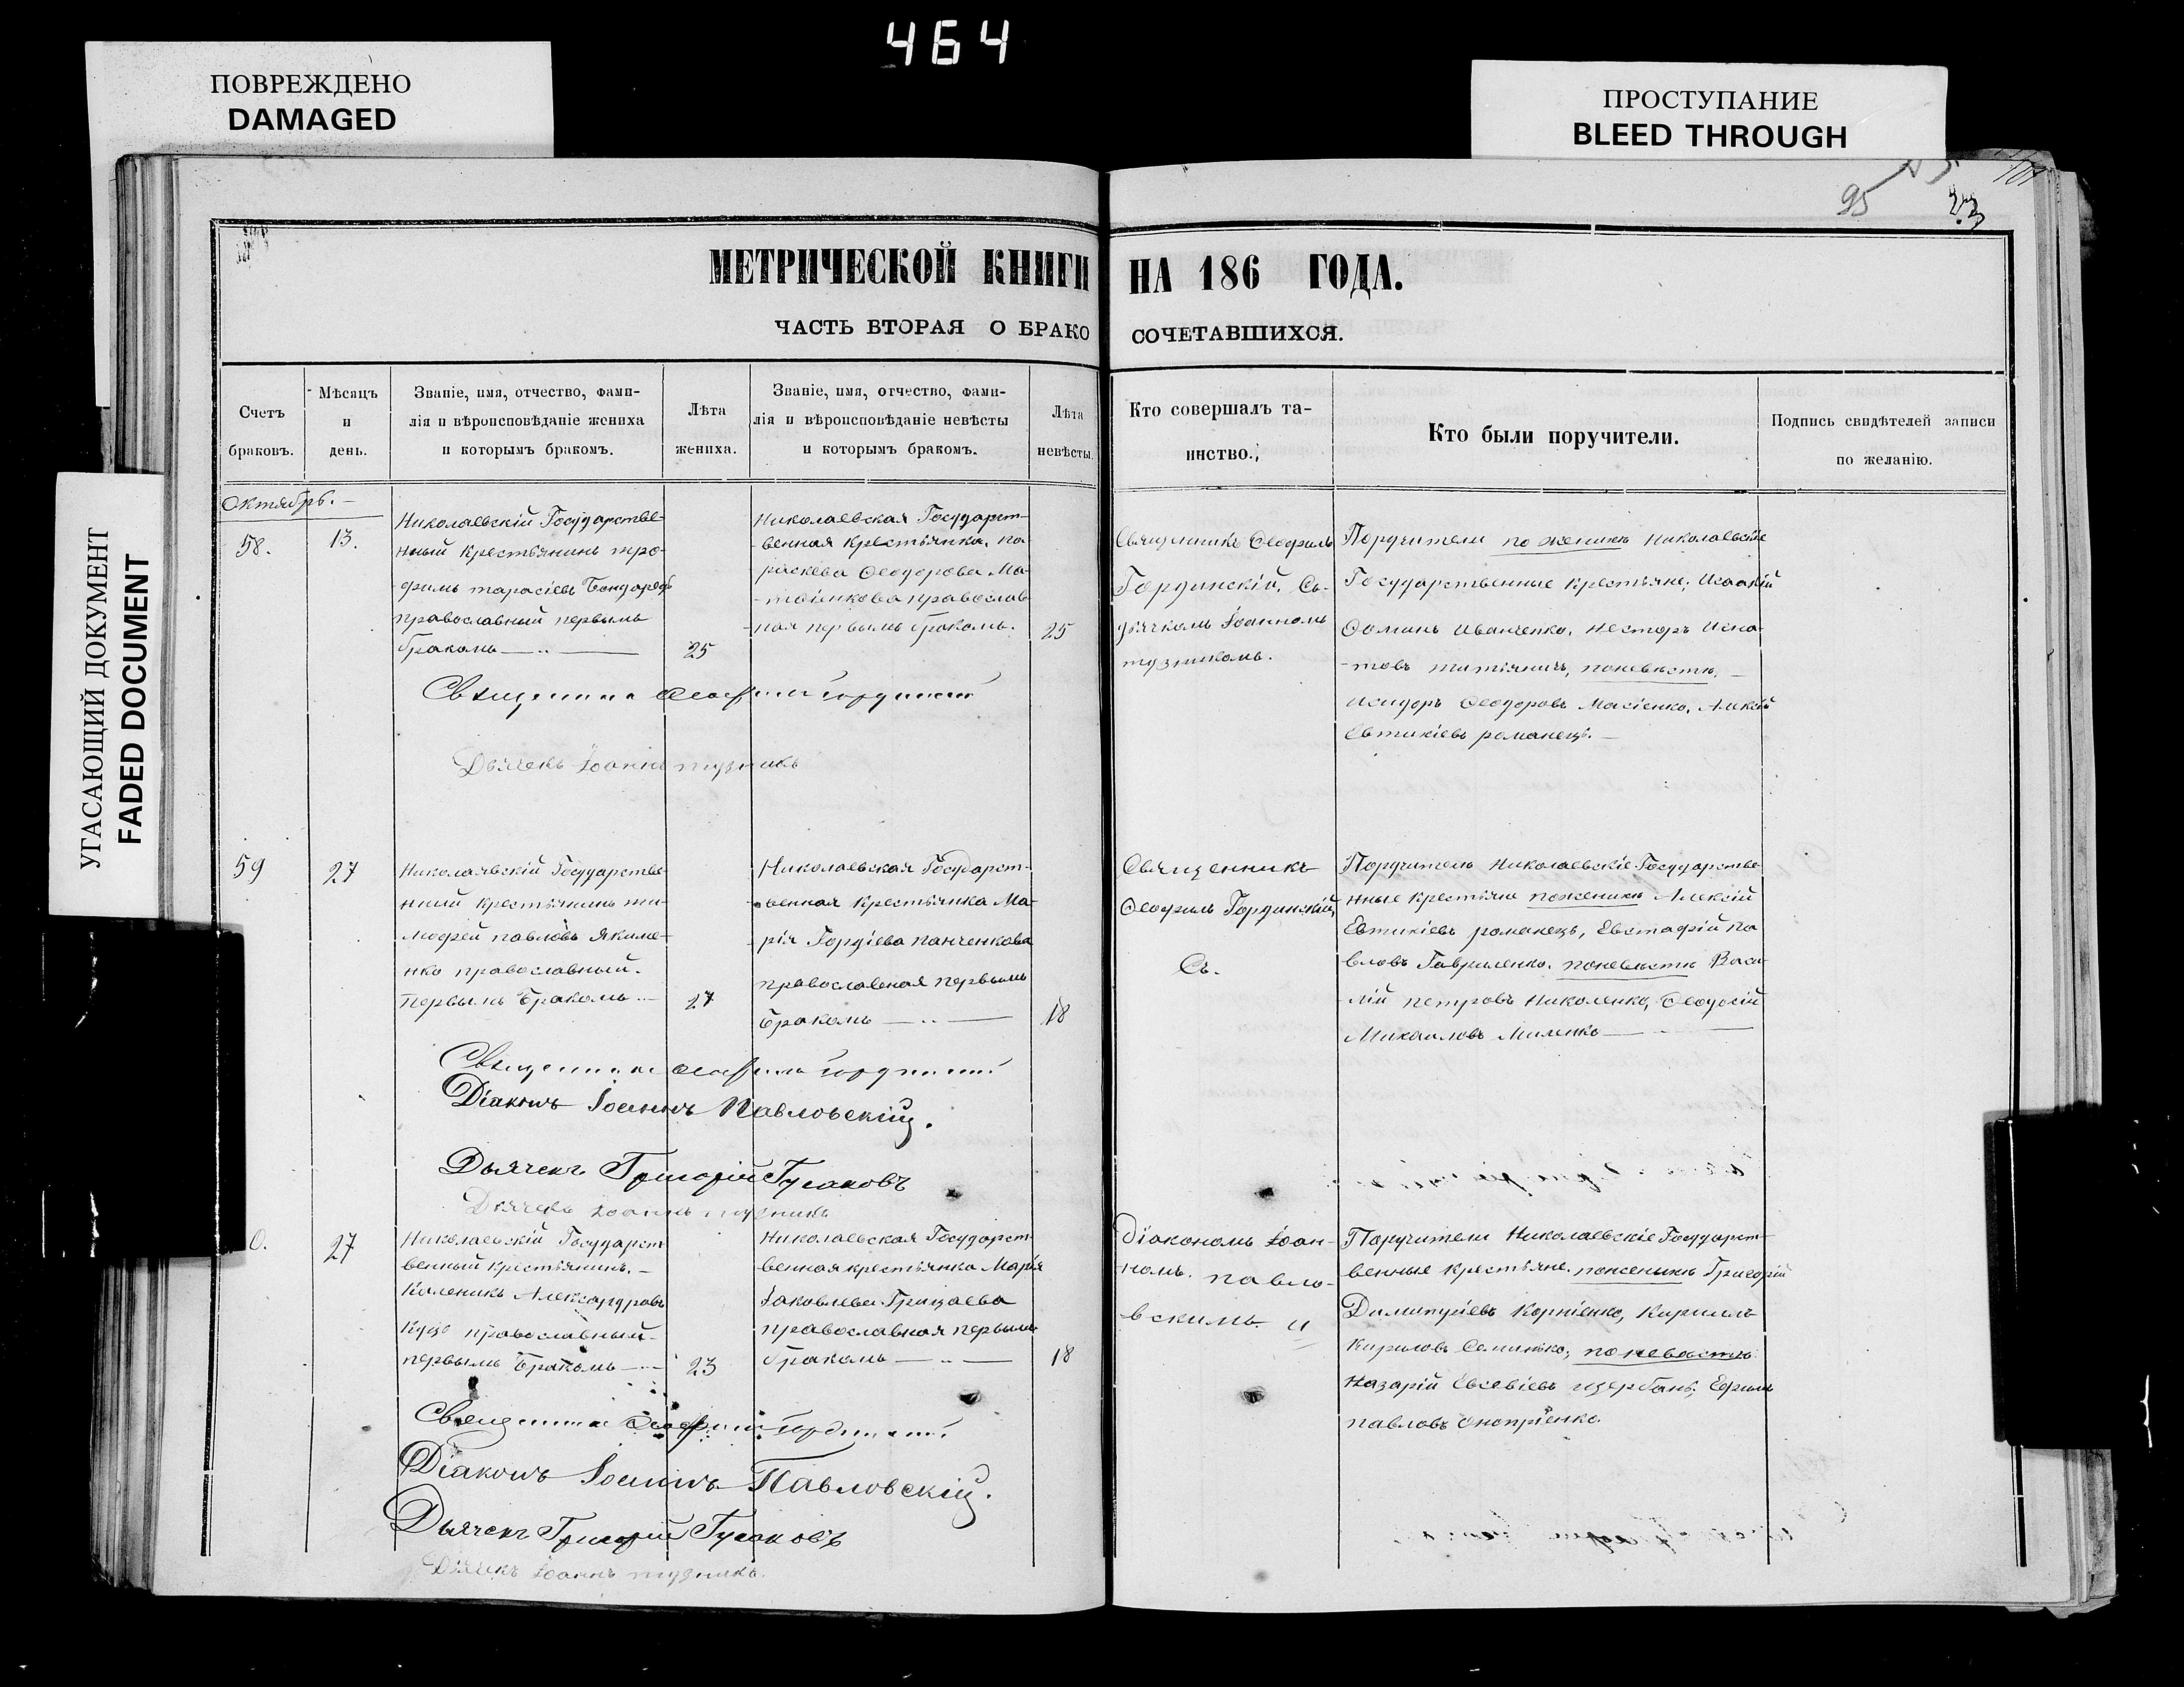 464
ПОВРЕЖДЕНО
DAMAGED
ПРОСТУПАНИЕ
BLEED THROUGH
УГАСАЮЩИЙ ДОКУМЕНТ
FADED DOCUMENT
95
МЕТРИЧЕСКОЙ КНИГИ НА 186 ГОДА.
ЧАСТЬ ВТОРАЯ О БРАКОСОЧЕТАВШИХСЯ.
Счетъ
браковъ.
Мѣсяцъ
и
день.
Званіе, имя, отчество, фами-
лія и вѣроисповѣданіе жениха
и которымъ бракомъ.
Лѣта
жениха.
Званіе, имя, отчество, фами-
лія и вѣроисповѣданіе невѣсты
и которымъ бракомъ.
Лѣта
невѣсты.
Кто совершалъ та-
инство.
Кто были поручители.
Подпись свидѣтелей записи
по желанію.
Октябрь.
58.
13.
Николаевскій Государстве-
нный крестьянинъ тро-
фимъ тарасіевъ Бондарь
православный первымъ
бракомъ
25
Николаевская Государст-
венная крестьянка, па-
раскева Ѳеодорова Ма-
православ-
ная первымъ бракомъ.
25
Священникъ Ѳеофилъ
Гординскій, Съ
дьячкомъ Іоанномъ
тузникомъ.
Поручители по женихѣ Николаевскіе
Государственные крестьяне; Исаакій
Ѳоминъ Иванченко, Несторъ Игна-
товъ поневѣстѣ,
Исидоръ Ѳеодоровъ Масіенко, Алексій
Евтихіевъ романецъ.
Священникъ Ѳеофилъ Гординскій
Дьячекъ Іоаннъ тузникъ
59
27
Николаевскій Государстве-
нный крестьянинъ ти-
мофей павловъ Якиме-
нко православный.
первымъ бракомъ
27
Николаевская Государст-
венная крестьянка Ма-
рія Гордіева панченкова
православная первымъ
бракомъ
18
Священникъ
Ѳеофилъ Гординскій,
Съ.
Поручители Николаевскіе Государстве-
нные крестьяне поженихѣ Алексій
Евтихіевъ романецъ, Евстафій па-
вловъ Гавриленко. поневѣстѣ Васи-
лій петровъ Николенко, Ѳеодосій
Михаиловъ Миленко
Священникъ Ѳеофилъ Гординскій
Діаконъ Іоаннъ Павловскій.
Дьячекъ Григорій Гусаковъ
Дьячекъ Іоаннъ тузникъ
0.
27
Николаевскій Государст-
венный крестьянинъ.
Каленикъ Александровъ
Куцо православный
первымъ бракомъ
23
Николаевская Государст-
венная крестьянка Марія
Іаковлева Грицаева
православная первымъ
бракомъ
18
Діакономъ Іоан-
номъ. павло-
вскимъ и
Поручители Николаевскіе Государст-
венные крестьяне. поженихѣ Григорій
Димитріевъ Корніенко, Кирилъ
Кириловъ поневѣстѣ
Назарій Евсевіевъ щербань, Ефимъ
павловъ Оноприенко.
Священникъ Ѳеофилъ Гординскій
Діаконъ Іоаннъ Павловскій.
Дьячекъ Григорій Гусаковъ
Дьячекъ Іоаннъ тузникъ.